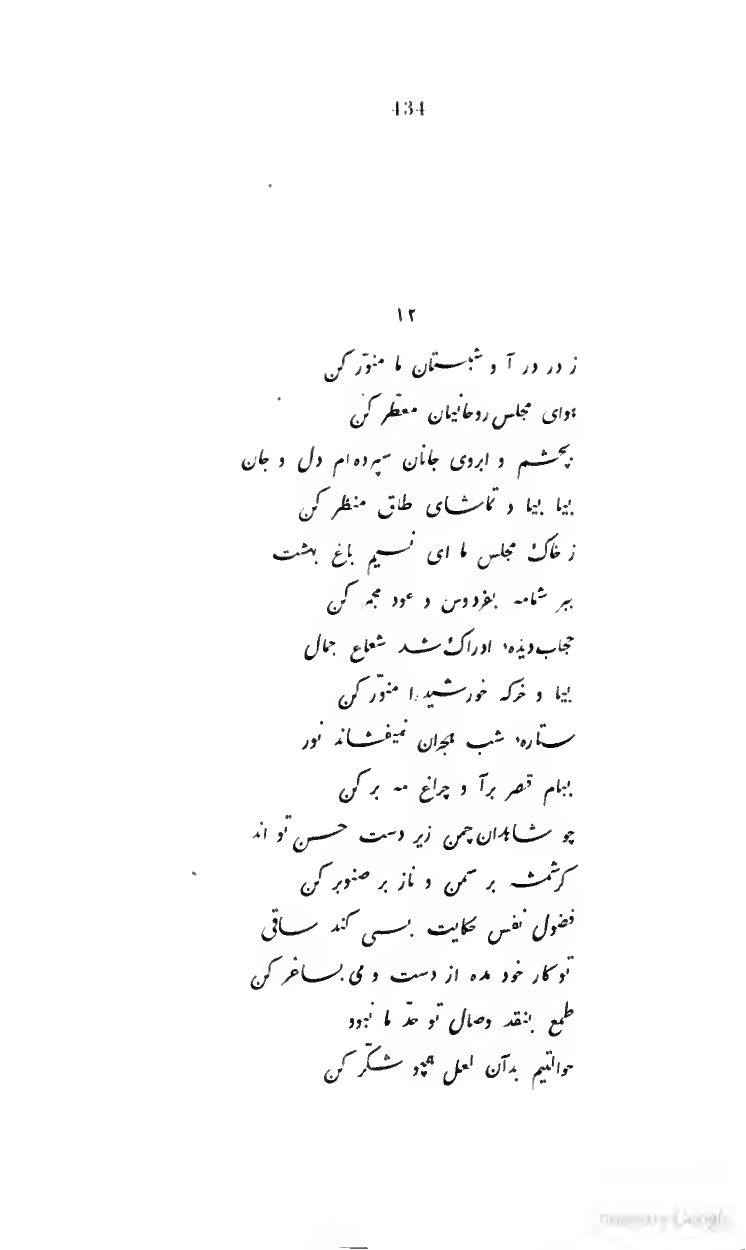 434
۱۲
ز در در آ و شبستان ما منوّر کن
هوای مجلس روحانیان معطّر کن
بچشم و ابروی جانان سپرده‌ام دل و جان
بیا بیا و تماشای طاق منظر کن
ز خاک مجلس ما ای نسیم باغ بهشت
ببر شمامه بفردوس و عود مجمر کن
حجاب دیدهٔ ادراک شد شعاع جمال
بیا و خرکه خورشید را منوّر کن
ستارهٔ شب هجران نمیفشاند نور
ببام قصر برآ و چراغ مه بر کن
چو شاهدان چمن زیر دست حسن تو اند
کرشمه بر سمن و ناز بر صنوبر کن
فضول نفس حکایت بسی کند ساقی
تو کار خود مده از دست و می بساغر کن
طمع بنقد وصال تو حدّ ما نبود
حوالتیم بدآن لعل همچو شکّر کن
Google